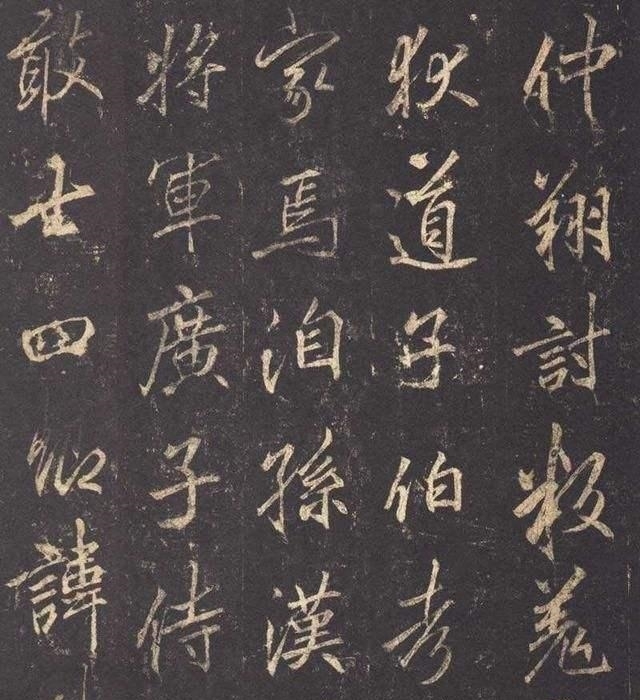 仲翔討叛羌
狄道子伯考
家焉洎孫漢
將軍廣子侍
敢廿四卿諱